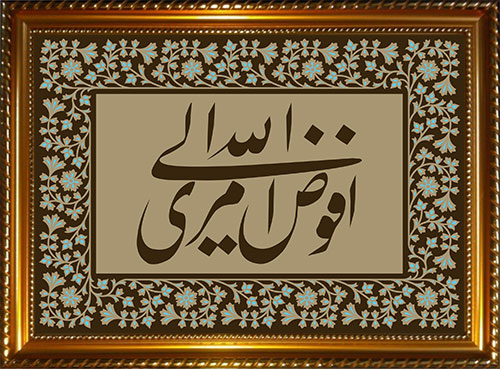 افوض امری
الی الله